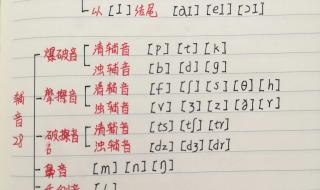 以 [I] 结尾 [aI] [eI] [ɔI]
爆破音 清辅音 [p] [t] [k]
浊辅音 [b] [d] [g]
辅音 28
摩擦音 清辅音 [f] [ʃ] [s] [θ] [h]
浊辅音 [v] [ʒ] [z] [ð] [r]
破擦音 清辅音 [ts] [tʃ] [tr]
浊辅音 [dz] [dʒ] [dr]
鼻音 [m] [n] [ŋ]